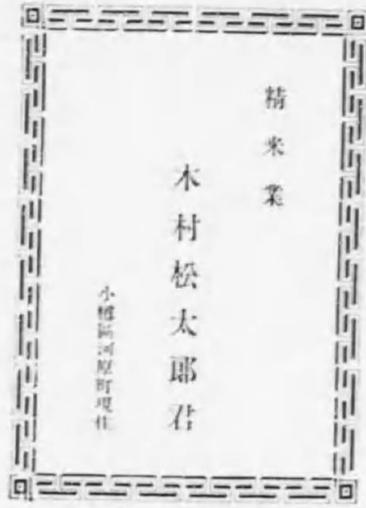 精米業
木村松太郎君
小樽區河原町現住